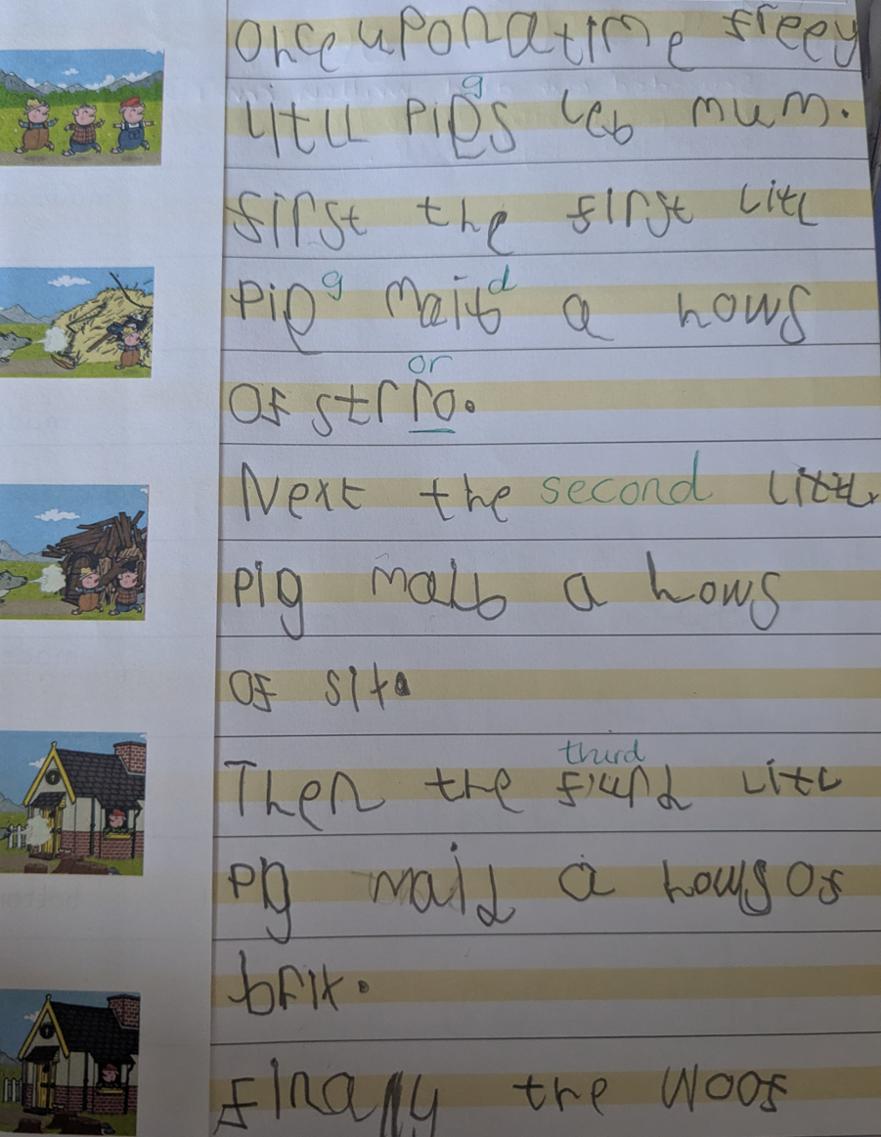 Onceuponatime freey
g
litll pigs leb mum.
first the first litl
g d
pig maib a hows
or
of strro.
Next the second littl
pig maib a hows
of sit.
third
Then the fiurd litl
pig maid a hows of
brix.
finally the woof